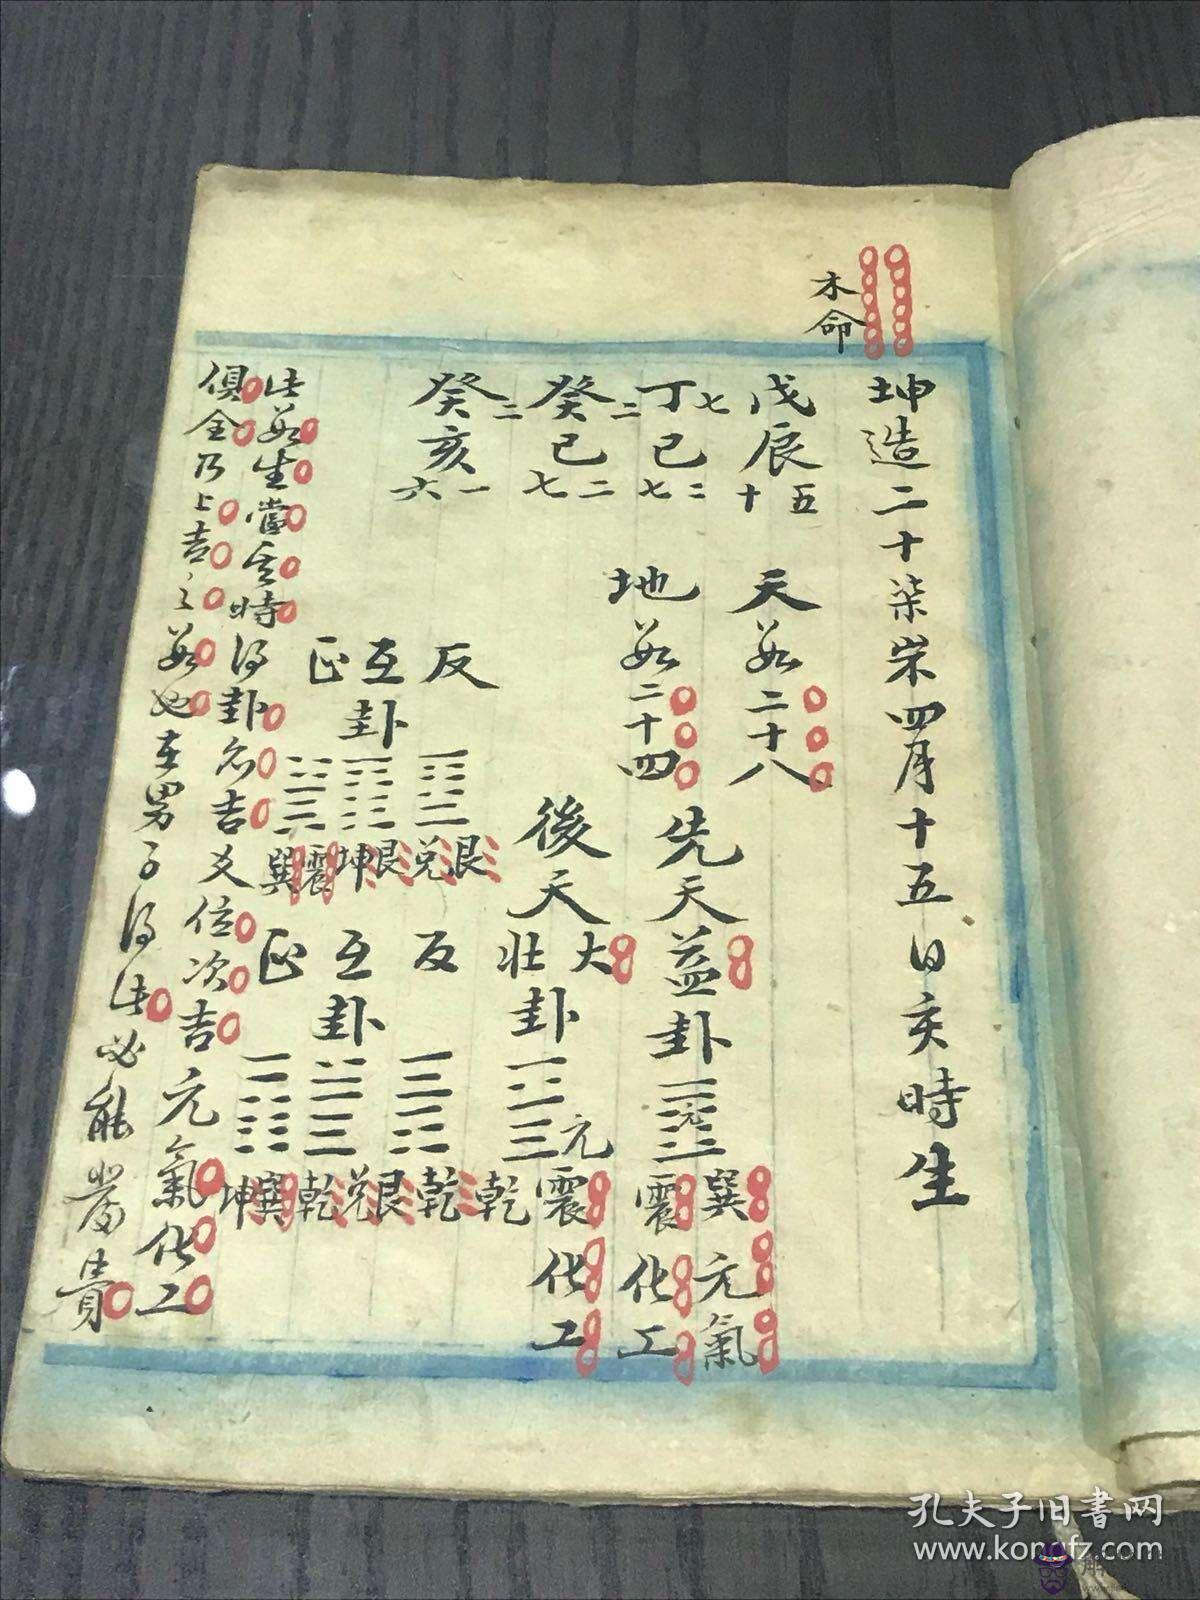 木命
坤造二十柒岽四月十五日亥時生
戊辰 十五
丁七巳 七二
癸二巳 七二
癸二亥 六一
天数二十八
地数二十四
先天益卦 元 巽元氣 震化工
後天大壯卦 元 震化工 乾
反 互卦 正
艮兌 艮坤 震巽
反 互卦 正
乾 艮兌 乾巽坤
此数生當其時得卦名吉爻位次吉元氣化工
俱全乃上吉之数也在男子得此必能發貴
孔夫子旧書网
www.kongfz.com